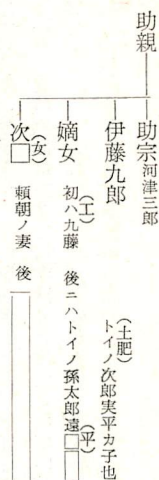 助親
助宗 河津三郎
伊藤九郎
嫡女 初ハ九藤(工) 後ニハトイノ孫太郎遠□(平)
(土肥)トイノ次郎実平カ子也
次□(女) 頼朝ノ妻 後